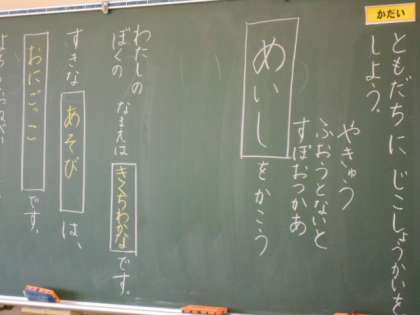 かだい
ともだちに、じこしょうかいを
しよう。
やきゅう
ふおうとないと
すぽおつかあ
めいしをかこう
わたしの
ぼくの
なまえは きくちわかな です。
すきな あそび は、
おにごっこ です。